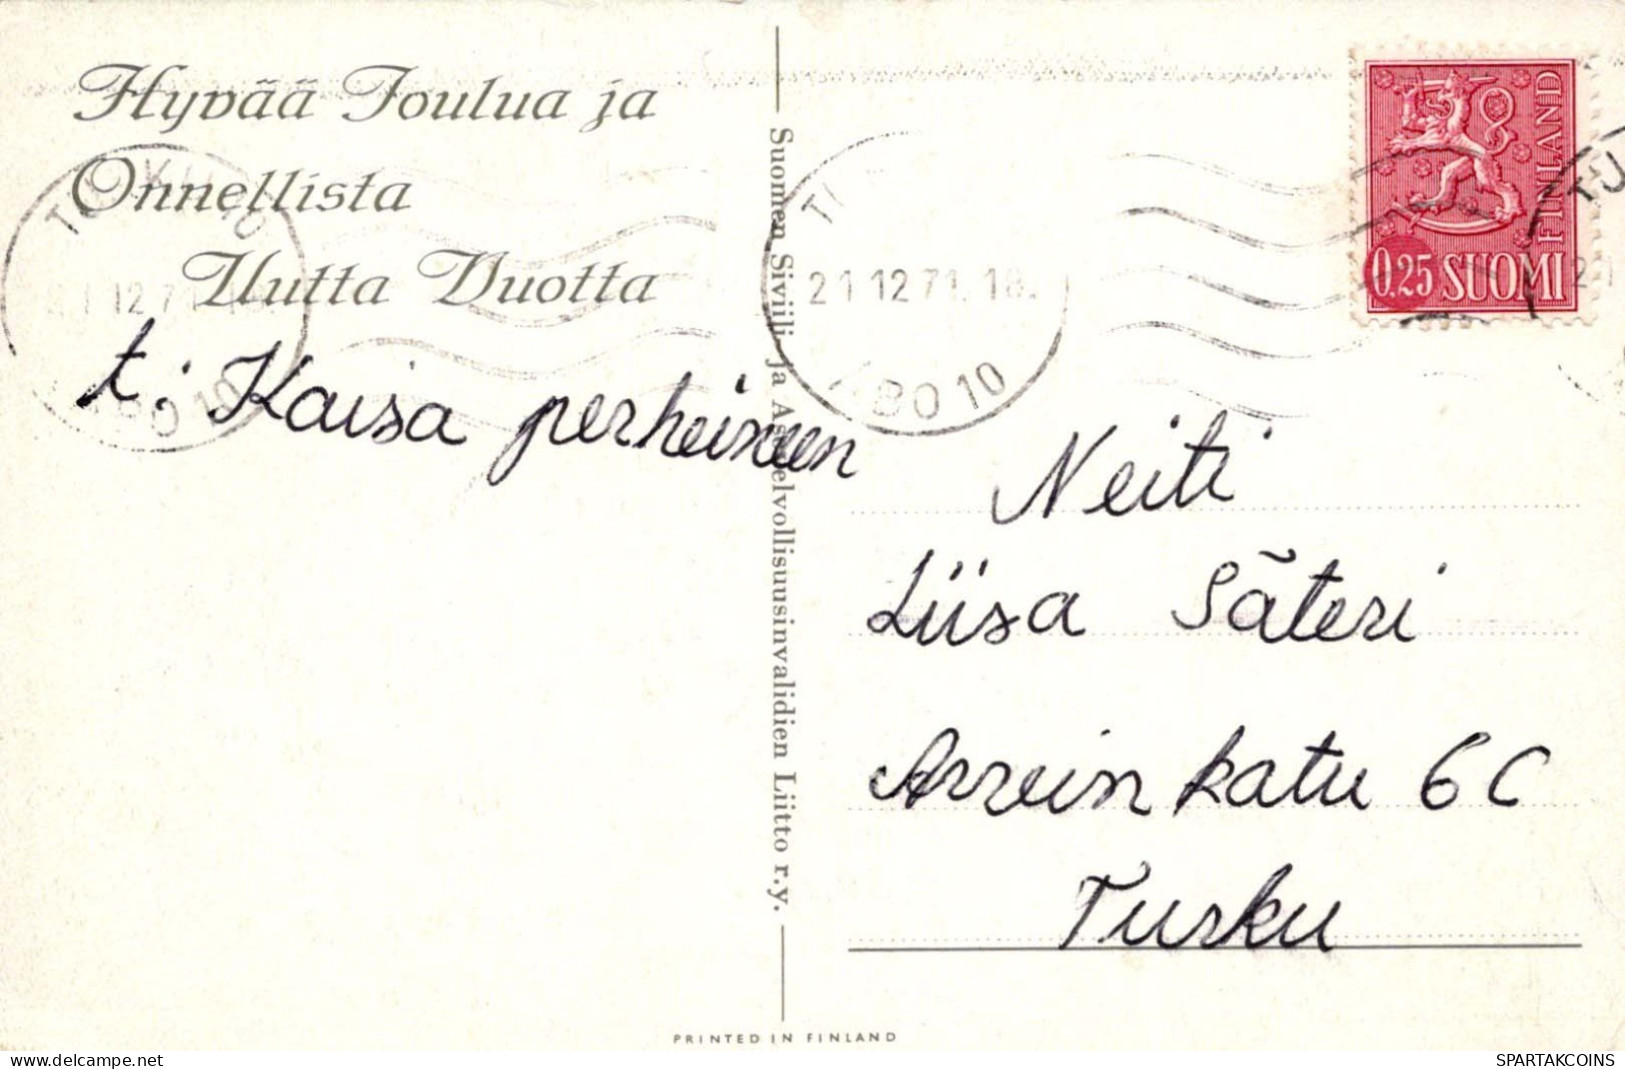 Hyvää Joulua ja
Onnellista
Uutta Vuotta
t: Kaisa perheineen
Suomen Siviili- ja Asevelvollisuusinvalidien Liitto r.y.
21 12 71. 18.
BO 10
0,25 SUOMI
FINLAND
Neiti
Liisa Säteri
Arvinkatu 6 C
Turku
PRINTED IN FINLAND
delcampe.net
SPARTAKCOINS